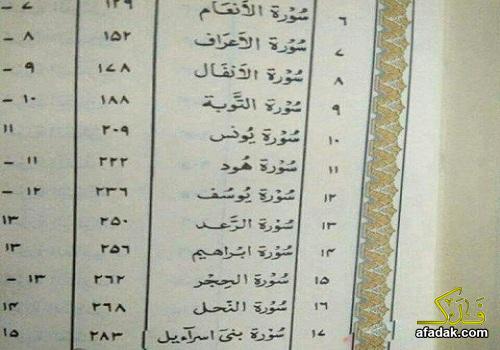 ٦ سُورَة الأَنعَام ١٢٩ ٧ -
٧ سُورَة الأَعرَاف ١٥٢ ٨ -
٨ سُورَة الأَنفَال ١٧٨ ٩ -
٩ سُورَة التَّوبَة ١٨٨ ١٠ -
١٠ سُورَة يُونس ٢٠٩ ١١
١١ سُورَة هُود ٢٢٢ ١١ -
١٢ سُورَة يُوسُف ٢٣٦ ١٢ -
١٣ سُورَة الرَّعد ٢٥٠ ١٣
١٤ سُورَة ابرَاهيم ٢٥٦ ١٣
١٥ سُورَة الحِجر ٢٦٢ ١٣ -
١٦ سُورَة النَّحل ٢٦٨ ١٤
١٧ سُورَة بَنى اسرَآءيل ٢٨٣ ١٥
afadak.com